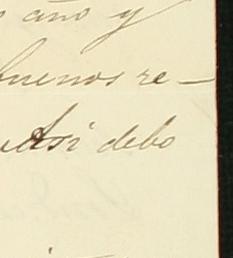 año y
buenos re-
Asi debo